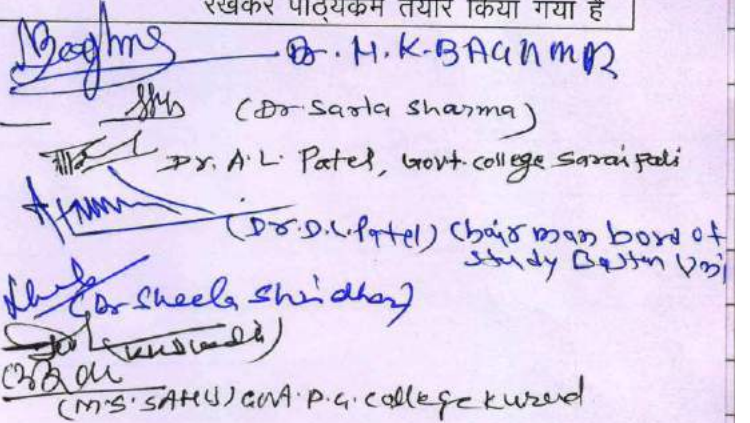 रखकर पाठ्यक्रम तैयार किया गया है
Dr. M. K. BAGHMAR
(Dr. Sarla Sharma)
Dr. A. L. Patel, Govt. college Saraipali
(Dr. D. L. Patel) Chairman bord of
study Baster Uni
(Dr Sheela Shridhar)
(M.S. SAHU) Govt. P.G. College Kurud